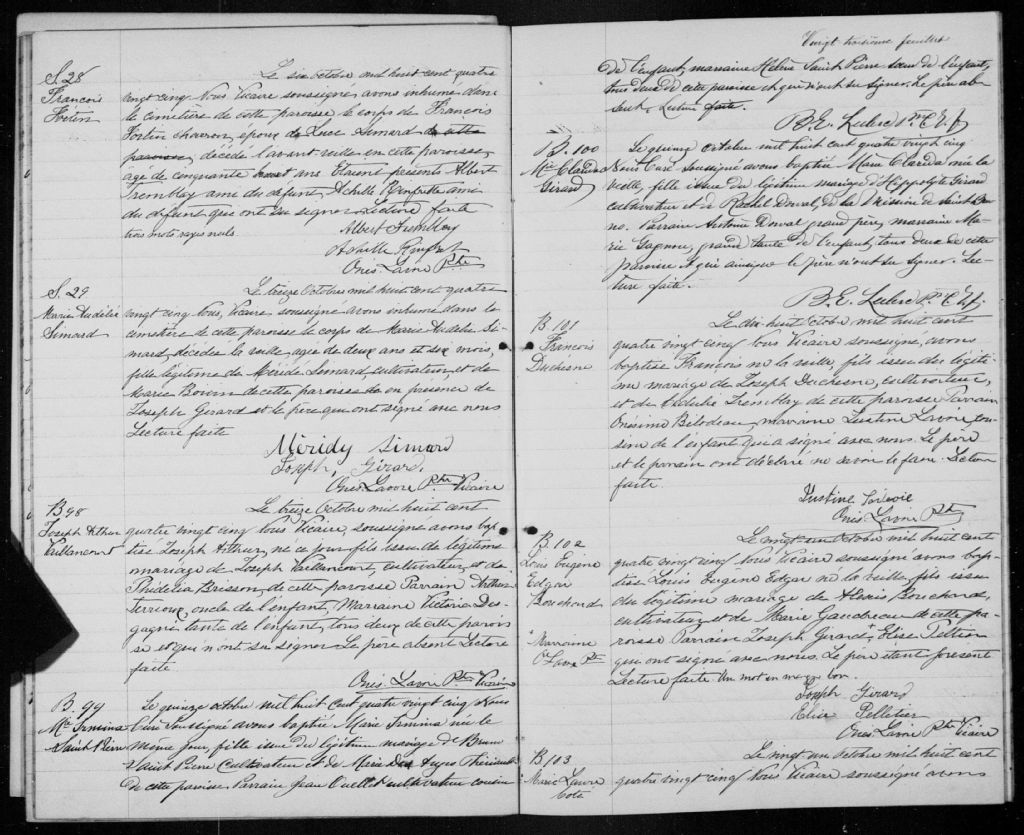 S. 28
François
Fortin
Le six octobre mil huit cent quatre
vingt cinq Nous Vicaire soussigné avons inhumé dans
le cimetière de cette paroisse le corps de François
Fortin charron, époux de Luce Simard de cette
paroisse, décédé l'avant-veille en cette paroisse,
age de cinquante ans. Etaient présents Albert
Tremblay ami du défunt, Achille ami
du défunt que ont su signer. Lecture faite
trois mots rayés nuls.
Albert Tremblay
Onés. Lavoie Ptre
S. 29
Marie Audélie
Simard
Le treize Octobre mil huit cent quatre
vingt cinq Nous, Vicaire soussigné avons inhumé dans le
cimetière de cette paroisse le corps de Marie Audélie Si-
mard, décédée la veille, agée de deux ans et six mois,
fille légitime de Méridé Simard, cultivateur, et de
Marie Boivin de cette paroisse en présence de
Joseph Girard et le père qui ont signé avec nous
Lecture faite
Méridy Simard
Joseph Girard.
Onés. Lavoie Ptre Vicaire
B 98
Joseph Arthur
Vaillancourt
Le treize Octobre mil huit cent
quatre vingt cinq Nous Vicaire, soussigné avons bap-
tisé Joseph Arthur, né ce jour fils issu de légitime
mariage de Joseph Vaillancourt, cultivateur, et de
Phidelia Brisson, de cette paroisse Parrain Arthur
Terrioux, oncle de l'enfant, Marraine Victoria Des-
gagné tante de l'enfant, tous deux de cette parois
se et qui n'ont su signer. Le père absent Lecture
faite.
Onés. Lavoie Ptre Vicaire
B. 99
Mie Irmina
Saint Pierre
Le quinze octobre mil huit cent quatre vingt cinq Nous
Curé Soussigné avons baptisé Marie Irmina née le
même jour, fille issue du légitime mariage de Bruno
Saint Pierre Cultivateur et de Marie
de cette paroisse, Parrain Jean Ouellet cultivateur cousin
Vingt troisième feuillet
de l'enfant, marraine Hélène Saint Pierre sœur de l'enfant,
tous deux de cette paroisse et qui n'ont su signer. Le père ab
sent. Lecture faite.
B.E. Leclerc Ptre
B. 100
Mie Clarida
Girard
Le quinze octobre mil huit cent quatre vingt cinq
Nous Curé Soussigné avons baptisé Marie Clarida née la
veille, fille issue du légitime mariage d'Hippolyte Girard
cultivateur et de Rachel Doval, de la Mission de Saint Bru
no. Parrain Antoine Doval grand père, marraine Ma-
rie Gagnon, grand'tante de l'enfant, tous deux de cette
paroisse et qui ainsi que le père n'ont su signer. Lec-
ture faite.
B.E. Leclerc Ptre
B 101
François
Duchesne
Le dix huit Octobre mil huit cent
quatre vingt cinq Nous Vicaire soussigné, avons
baptisé François né la veille, fils issu du légiti-
me mariage de Joseph Duchesne, cultivateur,
et de Tremblay de cette paroisse Parrain
Onésime Bilodeau, marraine Justine Lavoie cou-
sine de l'enfant qui a signé avec nous. Le père
et le parrain ont déclaré ne savoir le faire. Lecture
faite.
Justine Lavoie
Onés. Lavoie Ptre
B. 102
Louis Eugène
Edgar
Bouchard
Le vingt un Octobre mil huit cent
quatre vingt cinq Nous Vicaire soussigné avons bap-
tisé Louis Eugène Edgar né la veille, fils issu
du légitime mariage de Alexis Bouchard,
cultivateur et de Marie Gaudreau de cette pa-
roisse Parrain Joseph Girard + Elise Pelletier
qui ont signé avec nous. Le père étant présent
Lecture faite Un mot en marge bon.
+ Marraine
O. Lavoie Ptre
Joseph Girard
Elise Pelletier
Onés. Lavoie Ptre Vicaire
B 103
Marie Laure
Coté
Le vingt un Octobre mil huit cent
quatre vingt cinq Nous Vicaire soussigné avons